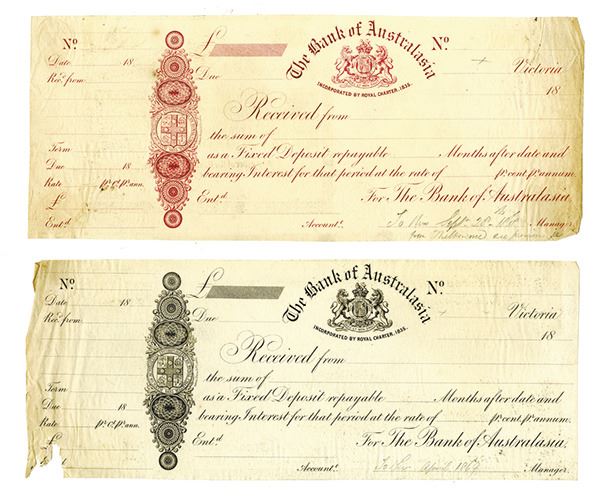 Nº
£
The Bank of Australasia
INCORPORATED BY ROYAL CHARTER, 1835.
Nº
Date 18
Due
Victoria
Recd. from
18
Received from
the sum of
Term
as a Fixed Deposit repayable Months after date and
Due 18
bearing Interest for that period at the rate of pr. cent. pr. annum.
Rate pr. Ct. pr. ann.
£
For The Bank of Australasia.
Entd.
Entd.
Accountt.
Sept. 28th
Manager.
from
Nº
£
The Bank of Australasia
INCORPORATED BY ROYAL CHARTER, 1835.
Nº
Date 18
Due
Victoria
Recd. from
18
Received from
the sum of
Term
as a Fixed Deposit repayable Months after date and
Due 18
bearing Interest for that period at the rate of pr. cent. pr. annum.
Rate pr. Ct. pr. ann.
£
For The Bank of Australasia.
Entd.
Accountt.
April
Manager.